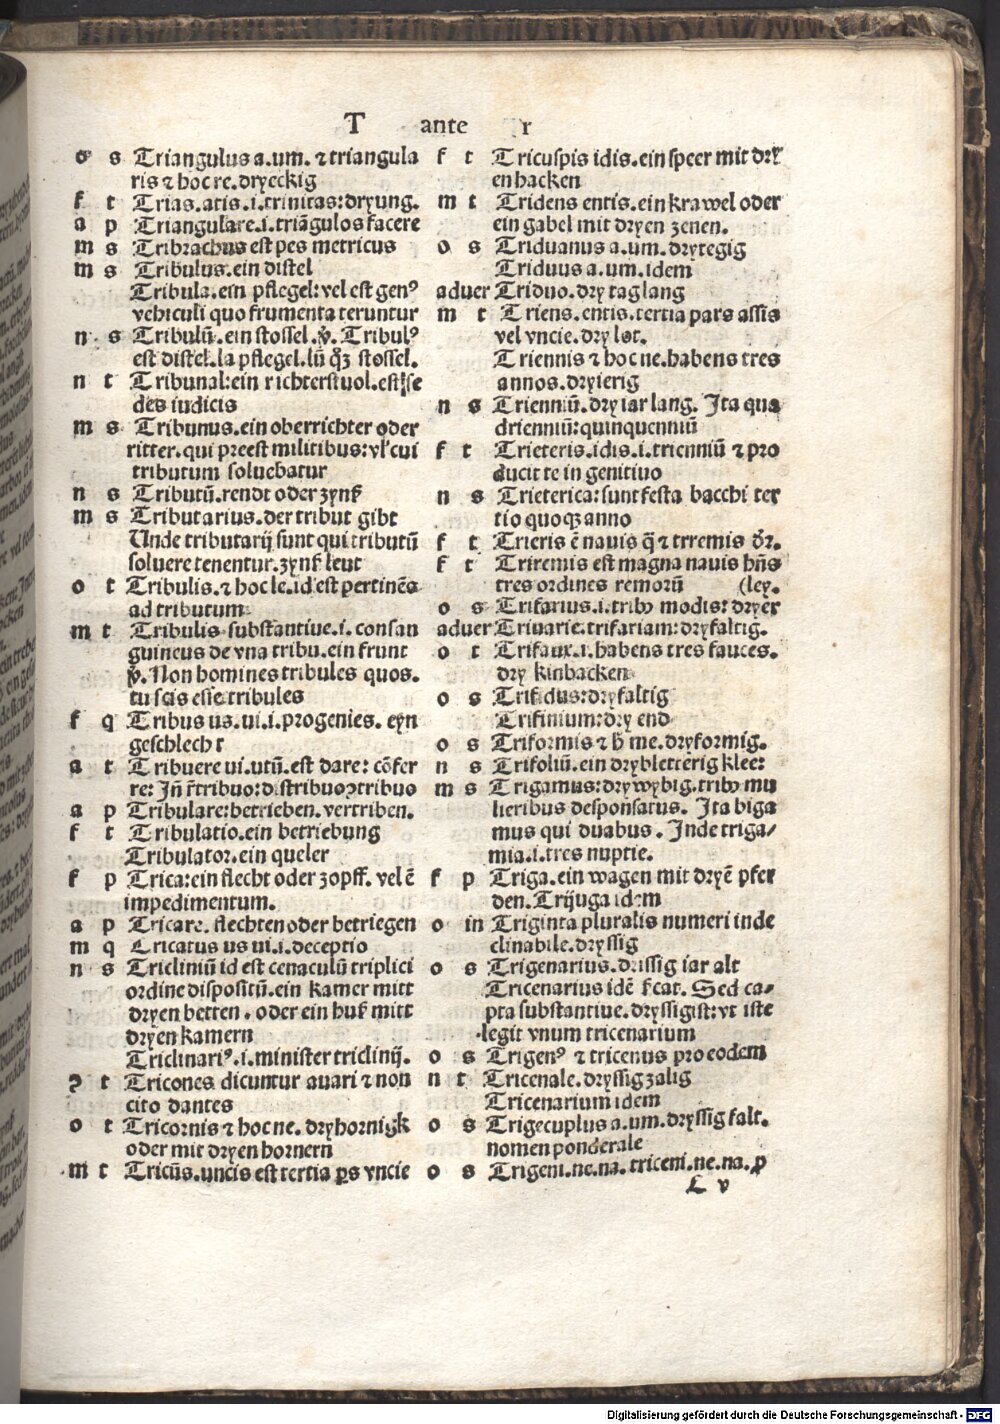 T ante r
o s Triangulus a.um. ⁊ triangula
ris ⁊ hoc re. dryeckig
f t Trias.atis.i.trinitas: dryung.
a p Triangulare.i.triãgulos facere
m s Tribrachus est pes metricus
m s Tribulus.ein distel
Tribula.ein pflegel: vel est genꝰ
vehiculi quo frumenta teruntur
n s Tribulũ.ein stossel. Tribulꝰ
est distel.la pflegel.lũ qʒ stossel.
n t Tribunal: ein richterstuol.est se
des iudicis
m s Tribunus.ein oberrichter oder
ritter.qui preest militibus: vł cui
tributum soluebatur
n s Tributũ.rendt oder zynß
m s Tributarius.der tribut gibt
Unde tributarij sunt qui tributũ
soluere tenentur.zynß leut
o t Tribulis.⁊ hoc le.id est pertinẽs
ad tributum
m t Tribulis substantiue.i.consan
guineus de vna tribu.ein frunt
Non homines tribules quos.
tu scis esse tribules
f q Tribus us.ui.i.progenies. eyn
geschlecht
a t Tribuere ui.utũ.est dare: cõfer
re: Jñ r̃tribuo: distribuo ↄtribuo
a p Tribulare: betrieben.vertriben.
f t Tribulatio.ein betriebung
Tribulator.ein queler
f p Trica: ein flecht oder zopff. vel ẽ
impedimentum.
a p Tricare. flechten oder betriegen
m q Tricatus us ui.i.deceptio
n s Tricliniũ id est cenaculũ triplici
ordine dispositũ.ein kamer mitt
dryen betten. oder ein huß mitt
dryen kamern
Triclinariꝰ.i.minister triclinij.
ꝯ t Tricones dicuntur auari ⁊ non
cito dantes
o t Tricornis ⁊ hoc ne. dryhornigk
oder mit dryen hornern
m t Tricũs.uncis est tertia ꝑs vncie
f t Tricuspis idis.ein speer mit dry
en hacken
m t Tridens entis.ein krawel oder
ein gabel mit dryen zenen.
o s Triduanus a.um.drytegig
Triduus a.um.idem
aduer Triduo.dry tag lang
m t Triens.entis.tertia pars assis
vel vncie.dry lot.
Triennis ⁊ hoc ne.habens tres
annos.dryierig
n s Trienniũ.dry iar lang. Jta qua
drienniũ: quinquenniũ
f t Trieteris.idis.i.trienniũ ⁊ pro
ducit te in genitiuo
n s Trieterica: sunt festa bacchi ter
tio quoqʒ anno
f t Trieris ẽ nauis q̃ ⁊ trremis dr̃.
f t Triremis est magna nauis hñs
tres ordines remorũ (ley.
o s Trifarius.i.tribꝰ modis: dryer
aduer Triuarie.trifariam: dryfaltig.
o t Trifaux.i.habens tres fauces.
dry kinbacken
o s Trifidus: dryfaltig
Trifinium: dry end
o s Triformis ⁊ h̃ me.dryformig.
n s Trifoliũ.ein drybletterig klee:
m s Trigamus: drywybig.tribꝰ mu
lieribus desponsatus. Jta biga
mus qui duabus. Jnde triga/
mia.i.tres nuptie.
f p Triga.ein wagen mit dryẽ pfer
den. Trijuga idem
o in Triginta pluralis numeri inde
clinabile.dryssig
o s Trigenarius.drissig iar alt
Tricenarius idẽ ſcat. Sed ca/
pta substantiue.dryssigist: vt iste
legit vnum tricenarium
o s Trigenꝰ ⁊ tricenus pro eodem
n t Tricenale.dryssigzalig
Tricenarium idem
o s Trigecuplus a.um.dryssig falt.
nomen ponderale
o s Trigeni.ne.na. triceni.ne.na.ꝓ
L v
Digitalisierung gefördert durch die Deutsche Forschungsgemeinschaft - DFG